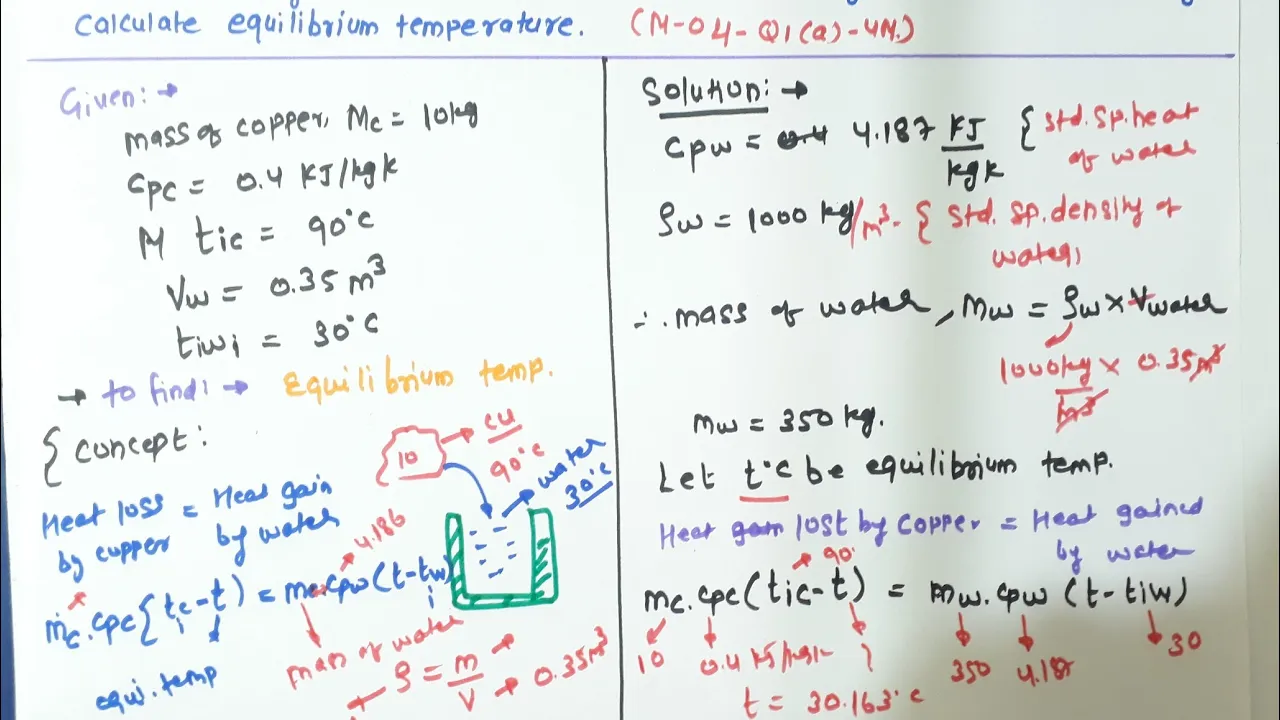 Calculate equilibrium temperature. (M-04-Q1(a)-4M.)
Given:→
mass of copper, Mc = 10kg
Cpc = 0.4 KJ/kgk
M tic = 90°c
Vw = 0.35 m³
tiwi = 30°c
→ to find: → Equilibrium temp.
{ concept:
10 → CU
90°c
water
30°c
Heat loss = Heat gain
by copper by water
4.186
mc.cpc{tic-t) = mc cpw(t-tw)
i
equi.temp
mass of water
ρ = m/V → 0.35m³
Solution:→
Cpw = 0.4 4.187 KJ/kgk { Std. Sp. heat
of water
ρw = 1000 kg/m³- { Std. Sp. density of
water,
∴ mass of water, Mw = ρw × Vwater
1000kg/m³ × 0.35m³
mw = 350 kg.
Let t°c be equilibrium temp.
Heat gain lost by copper = Heat gained
by water
90°
mc.cpc(tic-t) = mw.cpw (t-tiw)
10 0.4 KJ/kgk ? 350 4.187 30
t = 30.163°c